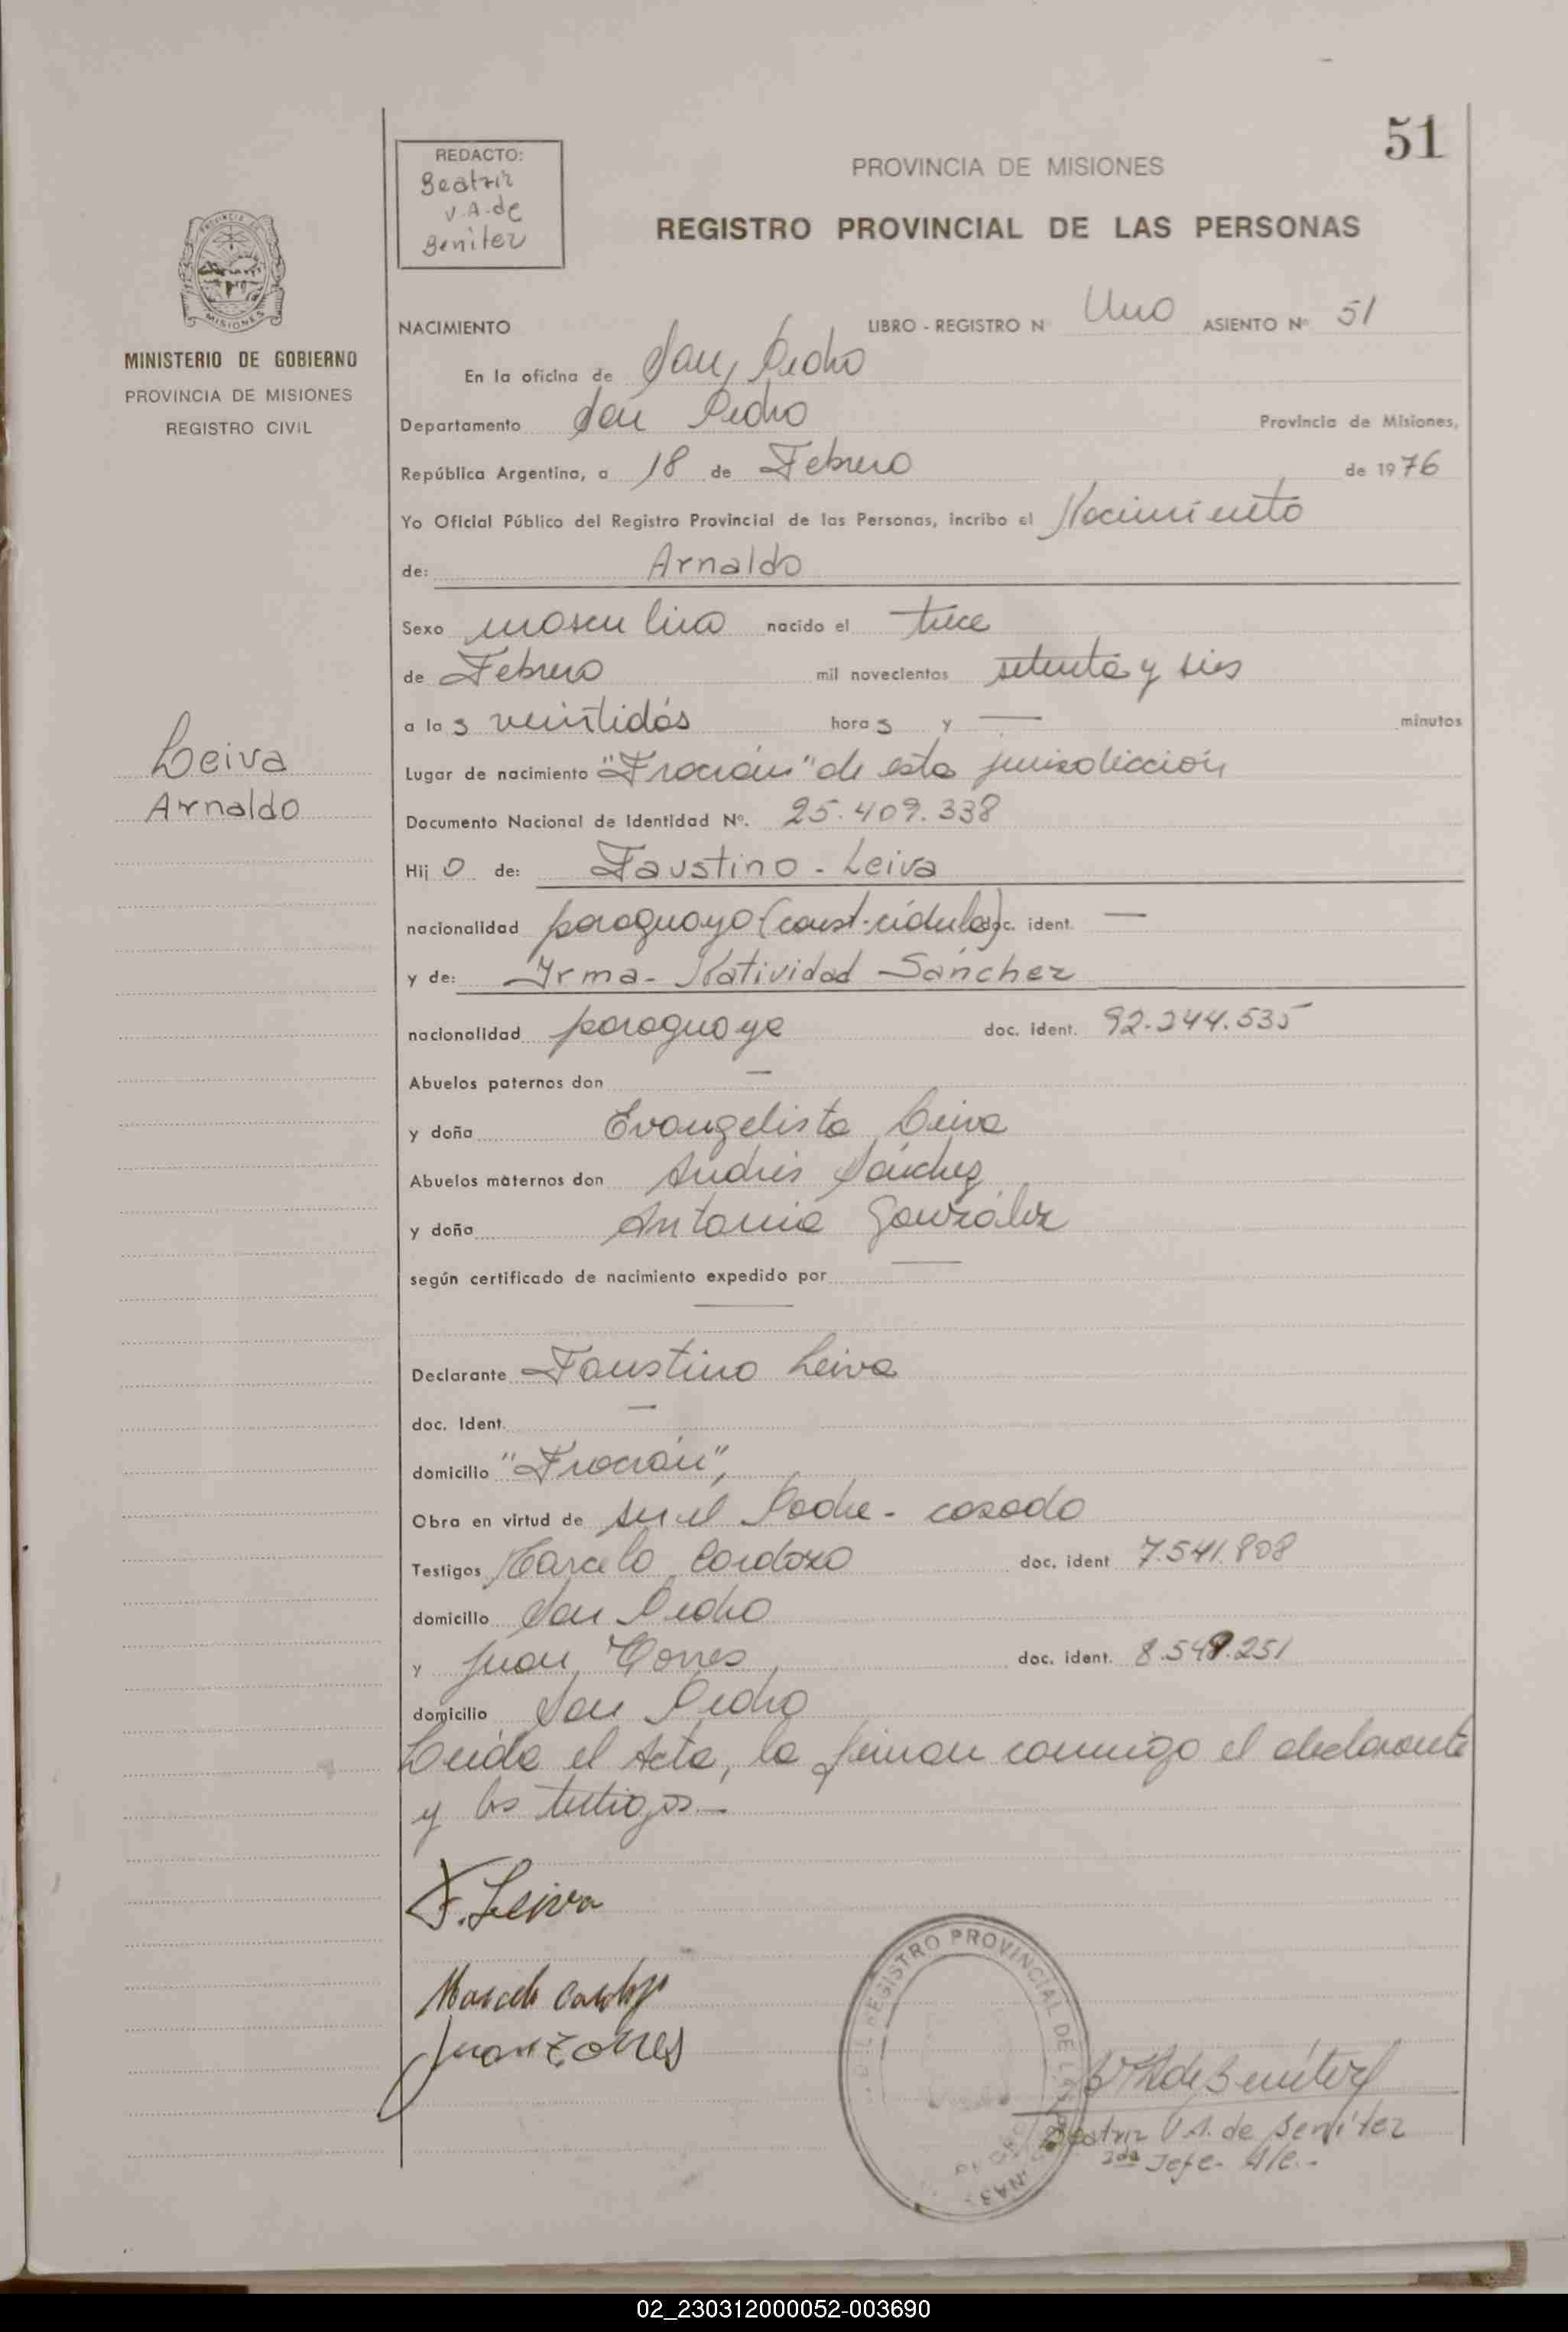 51
REDACTO:
Beatriz
V.A. de
Benitez
PROVINCIA DE MISIONES
REGISTRO PROVINCIAL DE LAS PERSONAS
MINISTERIO DE GOBIERNO
PROVINCIA DE MISIONES
REGISTRO CIVIL
Leiva
Arnaldo
NACIMIENTO LIBRO - REGISTRO N Uno ASIENTO Nº 51
En la oficina de San Pedro
Departamento San Pedro Provincia de Misiones,
República Argentina, a 18 de Febrero de 1976
Yo Oficial Público del Registro Provincial de las Personas, incribo el Nacimiento
de: Arnaldo
Sexo masculino nacido el trece
de Febrero mil novecientos setenta y seis
a las veintidós horas y — minutos
Lugar de nacimiento "Fracrán" de esta jurisdicción
Documento Nacional de Identidad Nº. 25.409.338
Hijo de: Faustino - Leiva
nacionalidad paraguayo (const. cédula) doc. ident. —
y de: Irma - Natividad Sánchez
nacionalidad paraguaya doc. ident. 92.244.535
Abuelos paternos don —
y doña Evangelista Leiva
Abuelos maternos don Andrés Sánchez
y doña Antonia González
según certificado de nacimiento expedido por —
—
Declarante Faustino Leiva
doc. Ident. —
domicilio "Fracrán",
Obra en virtud de ser el Padre - casado
Testigos Marcelo Cardozo doc. ident 7.541.808
domicilio San Pedro
y Juan Torres doc. ident. 8.549.251
domicilio San Pedro
Leída el Acta, la firman conmigo el declarante
y los testigos.—
F. Leiva
Marcelo Cardozo
Juan Torres
DEL REGISTRO PROVINCIAL DE LAS PERSONAS
Beatriz V.A. de Benítez
2da Jefe - A/c.-
02_230312000052-003690